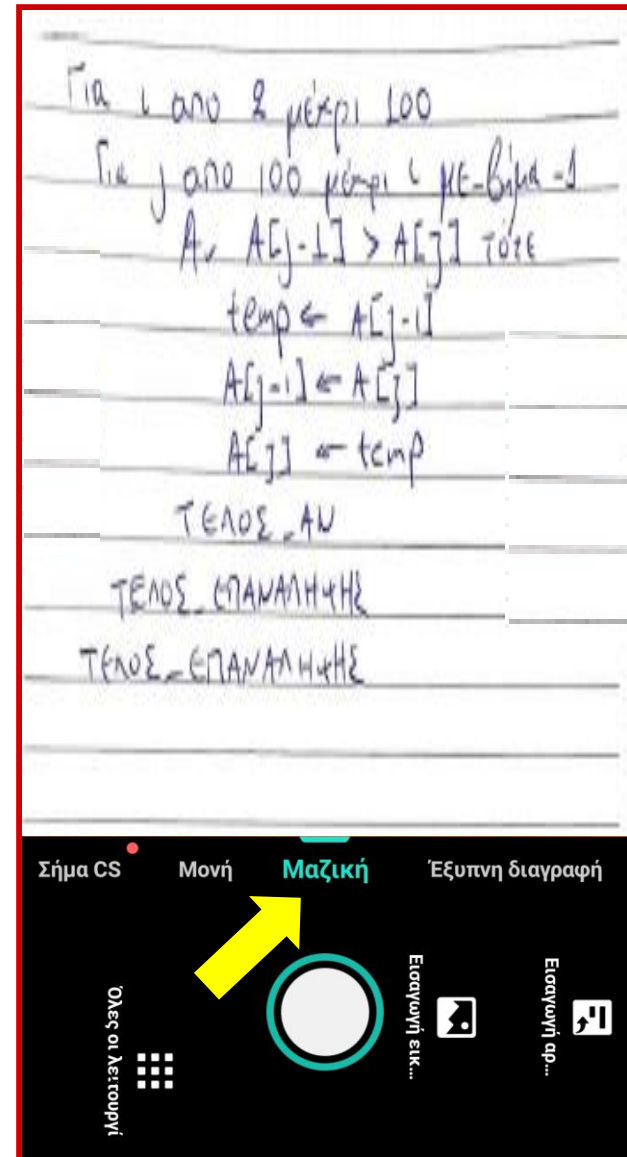 Για ι απο 2 μέχρι 100
Για j απο 100 μέχρι ι με_βήμα -1
Αν A[j-1] > A[j] τότε
temp ← A[j-1]
A[j-1] ← A[j]
A[j] ← temp
ΤΕΛΟΣ_ΑΝ
ΤΕΛΟΣ_ΕΠΑΝΑΛΗΨΗΣ
ΤΕΛΟΣ_ΕΠΑΝΑΛΗΨΗΣ
Σήμα CS
Μονή
Μαζική
Έξυπνη διαγραφή
Όλες οι λειτουργί
Εισαγωγή εικ...
Εισαγωγή αρ...